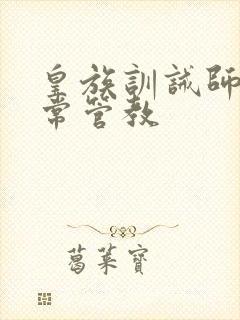 皇族訓誡師
常管教
葛菓寶